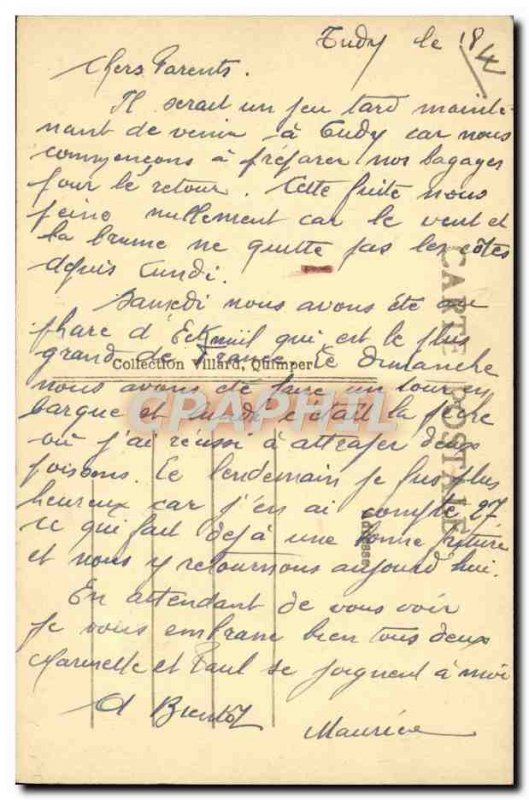 Tudy le 18/4
Chers Parents.
Il serait un peu tard mainte-
nant de venir à Tudy car nous
commençons à préparer nos bagages
pour le retour. Cette fuite nous
peine nullement car le vent et
la brume ne quitte pas les côtes
depuis Lundi.
Samedi nous avons été au
phare d'Eckmül qui est le plus
grand de France. Le dimanche
Collection Villard, Quimper
nous avons été faire un tour en
barque et Lundi c'était la pêche
où j'ai réussi à attraper deux
poissons. Le lendemain je fus plus
heureux car j'en ai compté 27
ce qui fait déjà une bonne friture
et nous y retournons aujourd'hui.
En attendant de vous voir
je vous embrasse bien tous deux
et Paul se joignent à moi
A Bientôt
Maurice
CARTE POSTALE
Adresse
CPAPHIL